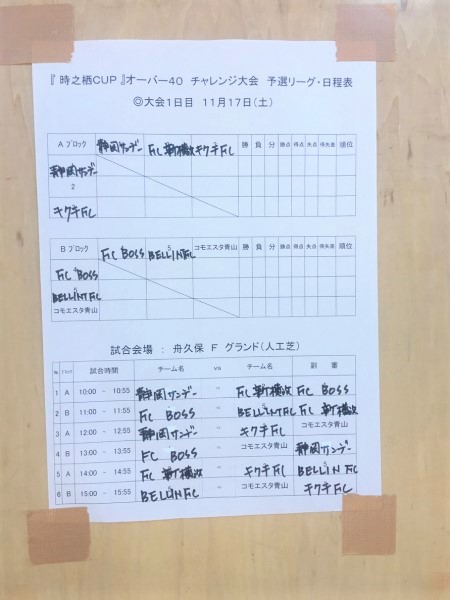 『 時之栖CUP 』オーバー40 チャレンジ大会 予選リーグ・日程表
◎大会1日目 11月17日(土)
A ブロック 静岡サンデー FC 新横浜 キクチFC 勝 負 分 勝点 得点 失点 得失差 順位
静岡サンデー
2
キクチFC
B ブロック FC BOSS BELLINI FC コモエスタ青山 勝 負 分 勝点 得点 失点 得失差 順位
FC BOSS
BELLINI FC
コモエスタ青山
試合会場 : 舟久保 F グランド(人工芝)
試合時間 チーム名 vs チーム名 副 審
1 A 10:00 - 10:55 静岡サンデー - FC 新横浜 FC BOSS
2 B 11:00 - 11:55 FC BOSS - BELLINI FC FC 新横浜
3 A 12:00 - 12:55 静岡サンデー - キクチFC コモエスタ青山
4 B 13:00 - 13:55 FC BOSS - コモエスタ青山 静岡サンデー
5 A 14:00 - 14:55 FC 新横浜 - キクチFC BELLINI FC
6 B 15:00 - 15:55 BELLINI FC - コモエスタ青山 キクチFC